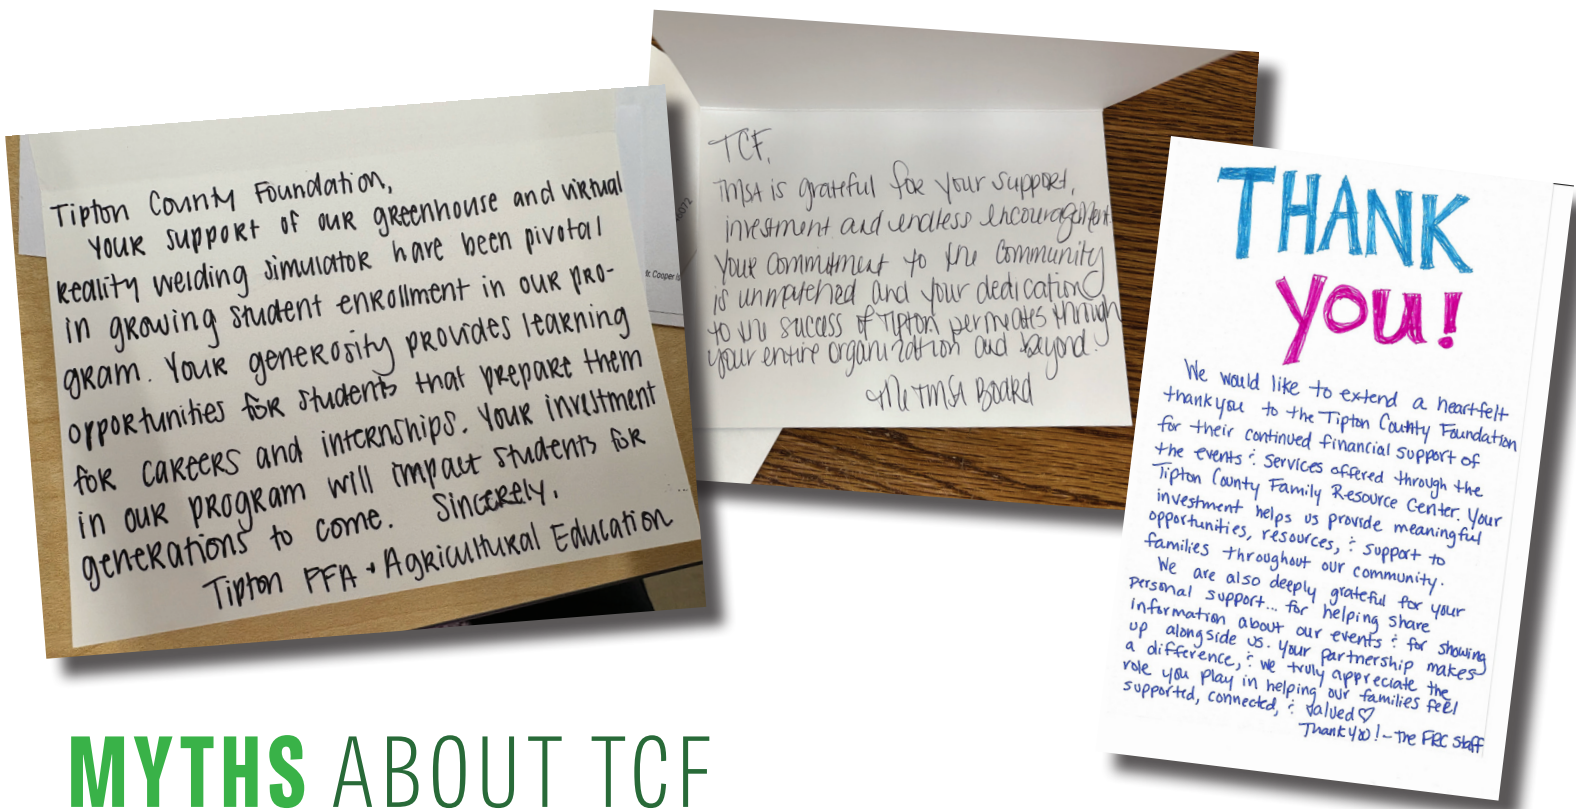 Tipton County Foundation,
Your support of our greenhouse and virtual
reality welding simulator have been pivotal
in growing student enrollment in our pro-
gram. Your generosity provides learning
opportunities for students that prepare them
for careers and internships. Your investment
in our program will impact students for
generations to come. Sincerely,
Tipton FFA + Agricultural Education
TCF,
TMSA is grateful for your support,
investment and endless encouragement
your commitment to the community
is unmatched and your dedication
to the success of Tipton permeates through
your entire organization and beyond.
The TMSA Board
THANK
YOU!
We would like to extend a heartfelt
thank you to the Tipton County Foundation
for their continued financial support of
the events & services offered through the
Tipton County Family Resource Center. Your
investment helps us provide meaningful
opportunities, resources, & support to
families throughout our community.
We are also deeply grateful for your
personal support... for helping share
information about our events & for showing
up alongside us. Your partnership makes
a difference, & we truly appreciate the
role you play in helping our families feel
supported, connected, & valued ♡
Thank you! - The FRC Staff
MYTHS ABOUT TCF